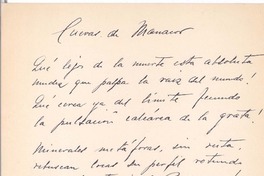 Cuevas de Manacor
Qué lejos de la muerte esta absoluta
mudez que palpa la raiz del mundo!
Qué cerca ya del límite fecundo
la pulsación calcárea de la gruta!
Minerales metáforas, sin ruta,
rebuscan locas su perfil rotundo